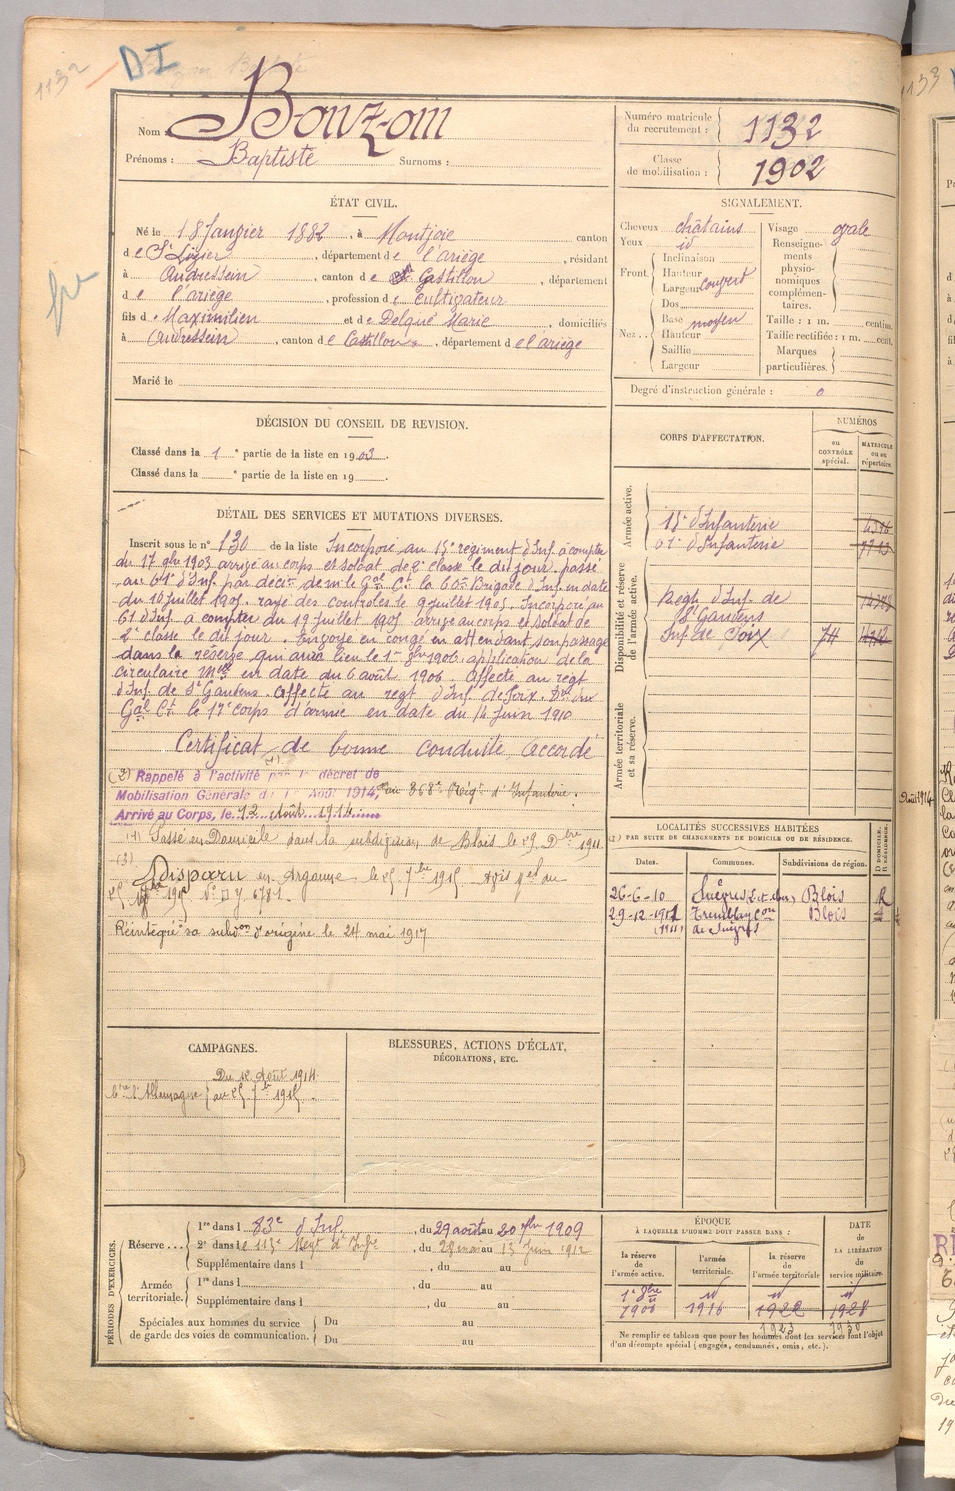 1132
DI
Nom : Bouzom
Prénoms : Baptiste Surnoms :
Numéro matricule du recrutement : 1132
Classe de mobilisation : 1902
ÉTAT CIVIL.
Né le 18 Janvier 1882, à Montjoie canton
de St Lizier, département de l'ariège, résidant
à Audressein, canton de Castillon, département
de l'ariège, profession de cultivateur
fils de Maximilien et de Delqué Marie, domiciliés
à Audressein, canton de Castillon, département de l'ariège
Marié le
SIGNALEMENT.
Cheveux châtains
Yeux id
Front Inclinaison
Hauteur
Largeur couvert
Nez Dos
Base moyen
Hauteur
Saillie
Largeur
Visage ovale
Renseignements physionomiques complémentaires.
Taille : 1 m. centim.
Taille rectifiée : 1 m. cent.
Marques particulières.
Degré d'instruction générale : 0
DÉCISION DU CONSEIL DE REVISION.
Classé dans la 1e partie de la liste en 1903.
Classé dans la e partie de la liste en 19 .
CORPS D'AFFECTATION.
NUMÉROS
au CONTRÔLE spécial.
MATRICULE ou au répertoire.
Armée active.
15e d'Infanterie
61e d'Infanterie
Disponibilité et réserve de l'armée active.
Regt d'Inf. de
St Gaudens
Inf. de Foix 74
Armée territoriale et sa réserve.
DÉTAIL DES SERVICES ET MUTATIONS DIVERSES.
Inscrit sous le no 130 de la liste Incorporé au 15e régiment d'Inf. à compter
du 17 9bre 1903 arrivé au corps et soldat de 2e classe le dit jour. passé
au 61e d'Inf. par décis. de m. le Gal Ct la 60e Brigade d'Inf. en date
du 16 juillet 1905. rayé des controles le 9 juillet 1905. Incorporé au
61 d'Inf. à compter du 19 juillet 1905 arrivé au corps et soldat de
2e classe le dit jour. Envoyé en congé en attendant son passage
dans la réserve qui aura lieu le 1er 8bre 1906. application de la
circulaire Mlle en date du 6 août 1906. Affecté au régt
d'Inf. de St Gaudens. Affecté au regt d'Inf. de Foix. Don du
Gal Ct le 17e corps d'armée en date du 14 Juin 1910
Certificat de bonne conduite accordé
(2) Rappelé à l'activité par le décret de
Mobilisation Générale du 1er Août 1914, au 368e Régt d'Infanterie.
Arrivé au Corps, le 12 Août 1914
(1) Passé en Domicile dans la subdivision de Blois le 29 Dbre 1911
(3) Disparu en Argonne le 25 7bre 1915 Avis
Réintégré sa subdon d'origine le 24 mai 1917
LOCALITÉS SUCCESSIVES HABITÉES
PAR SUITE DE CHANGEMENTS DE DOMICILE OU DE RÉSIDENCE.
Dates. Communes. Subdivisions de région. D DOMICILE. R RÉSIDENCE.
26-6-10 Suèvres (L-et-Cher) Blois R
29-12-1911 Tremblay Con Blois
(1911) de Suèvres
CAMPAGNES.
Ctre l'Allemagne Du 12 Août 1914
au 25 7bre 1915.
BLESSURES, ACTIONS D'ÉCLAT,
DÉCORATIONS, ETC.
PÉRIODES D'EXERCICES.
Réserve... 1re dans l 83e d'Inf., du 29 août au 20 7bre 1909
2e dans le 113e Régt d'Infie, du 28 mai au 13 Juin 1912
Supplémentaire dans l , du au
Armée territoriale. 1re dans l , du au
Supplémentaire dans l , du au
Spéciales aux hommes du service de garde des voies de communication. Du au
Du au
ÉPOQUE
À LAQUELLE L'HOMME DOIT PASSER DANS :
la réserve de l'armée active. l'armée territoriale. la réserve de l'armée territoriale
DATE de LA LIBÉRATION du service militaire.
1er 8bre id id id
1906 1916 1922 1928
1923 1930
Ne remplir ce tableau que pour les hommes dont les services font l'objet
d'un décompte spécial (engagés, condamnés, omis, etc.).